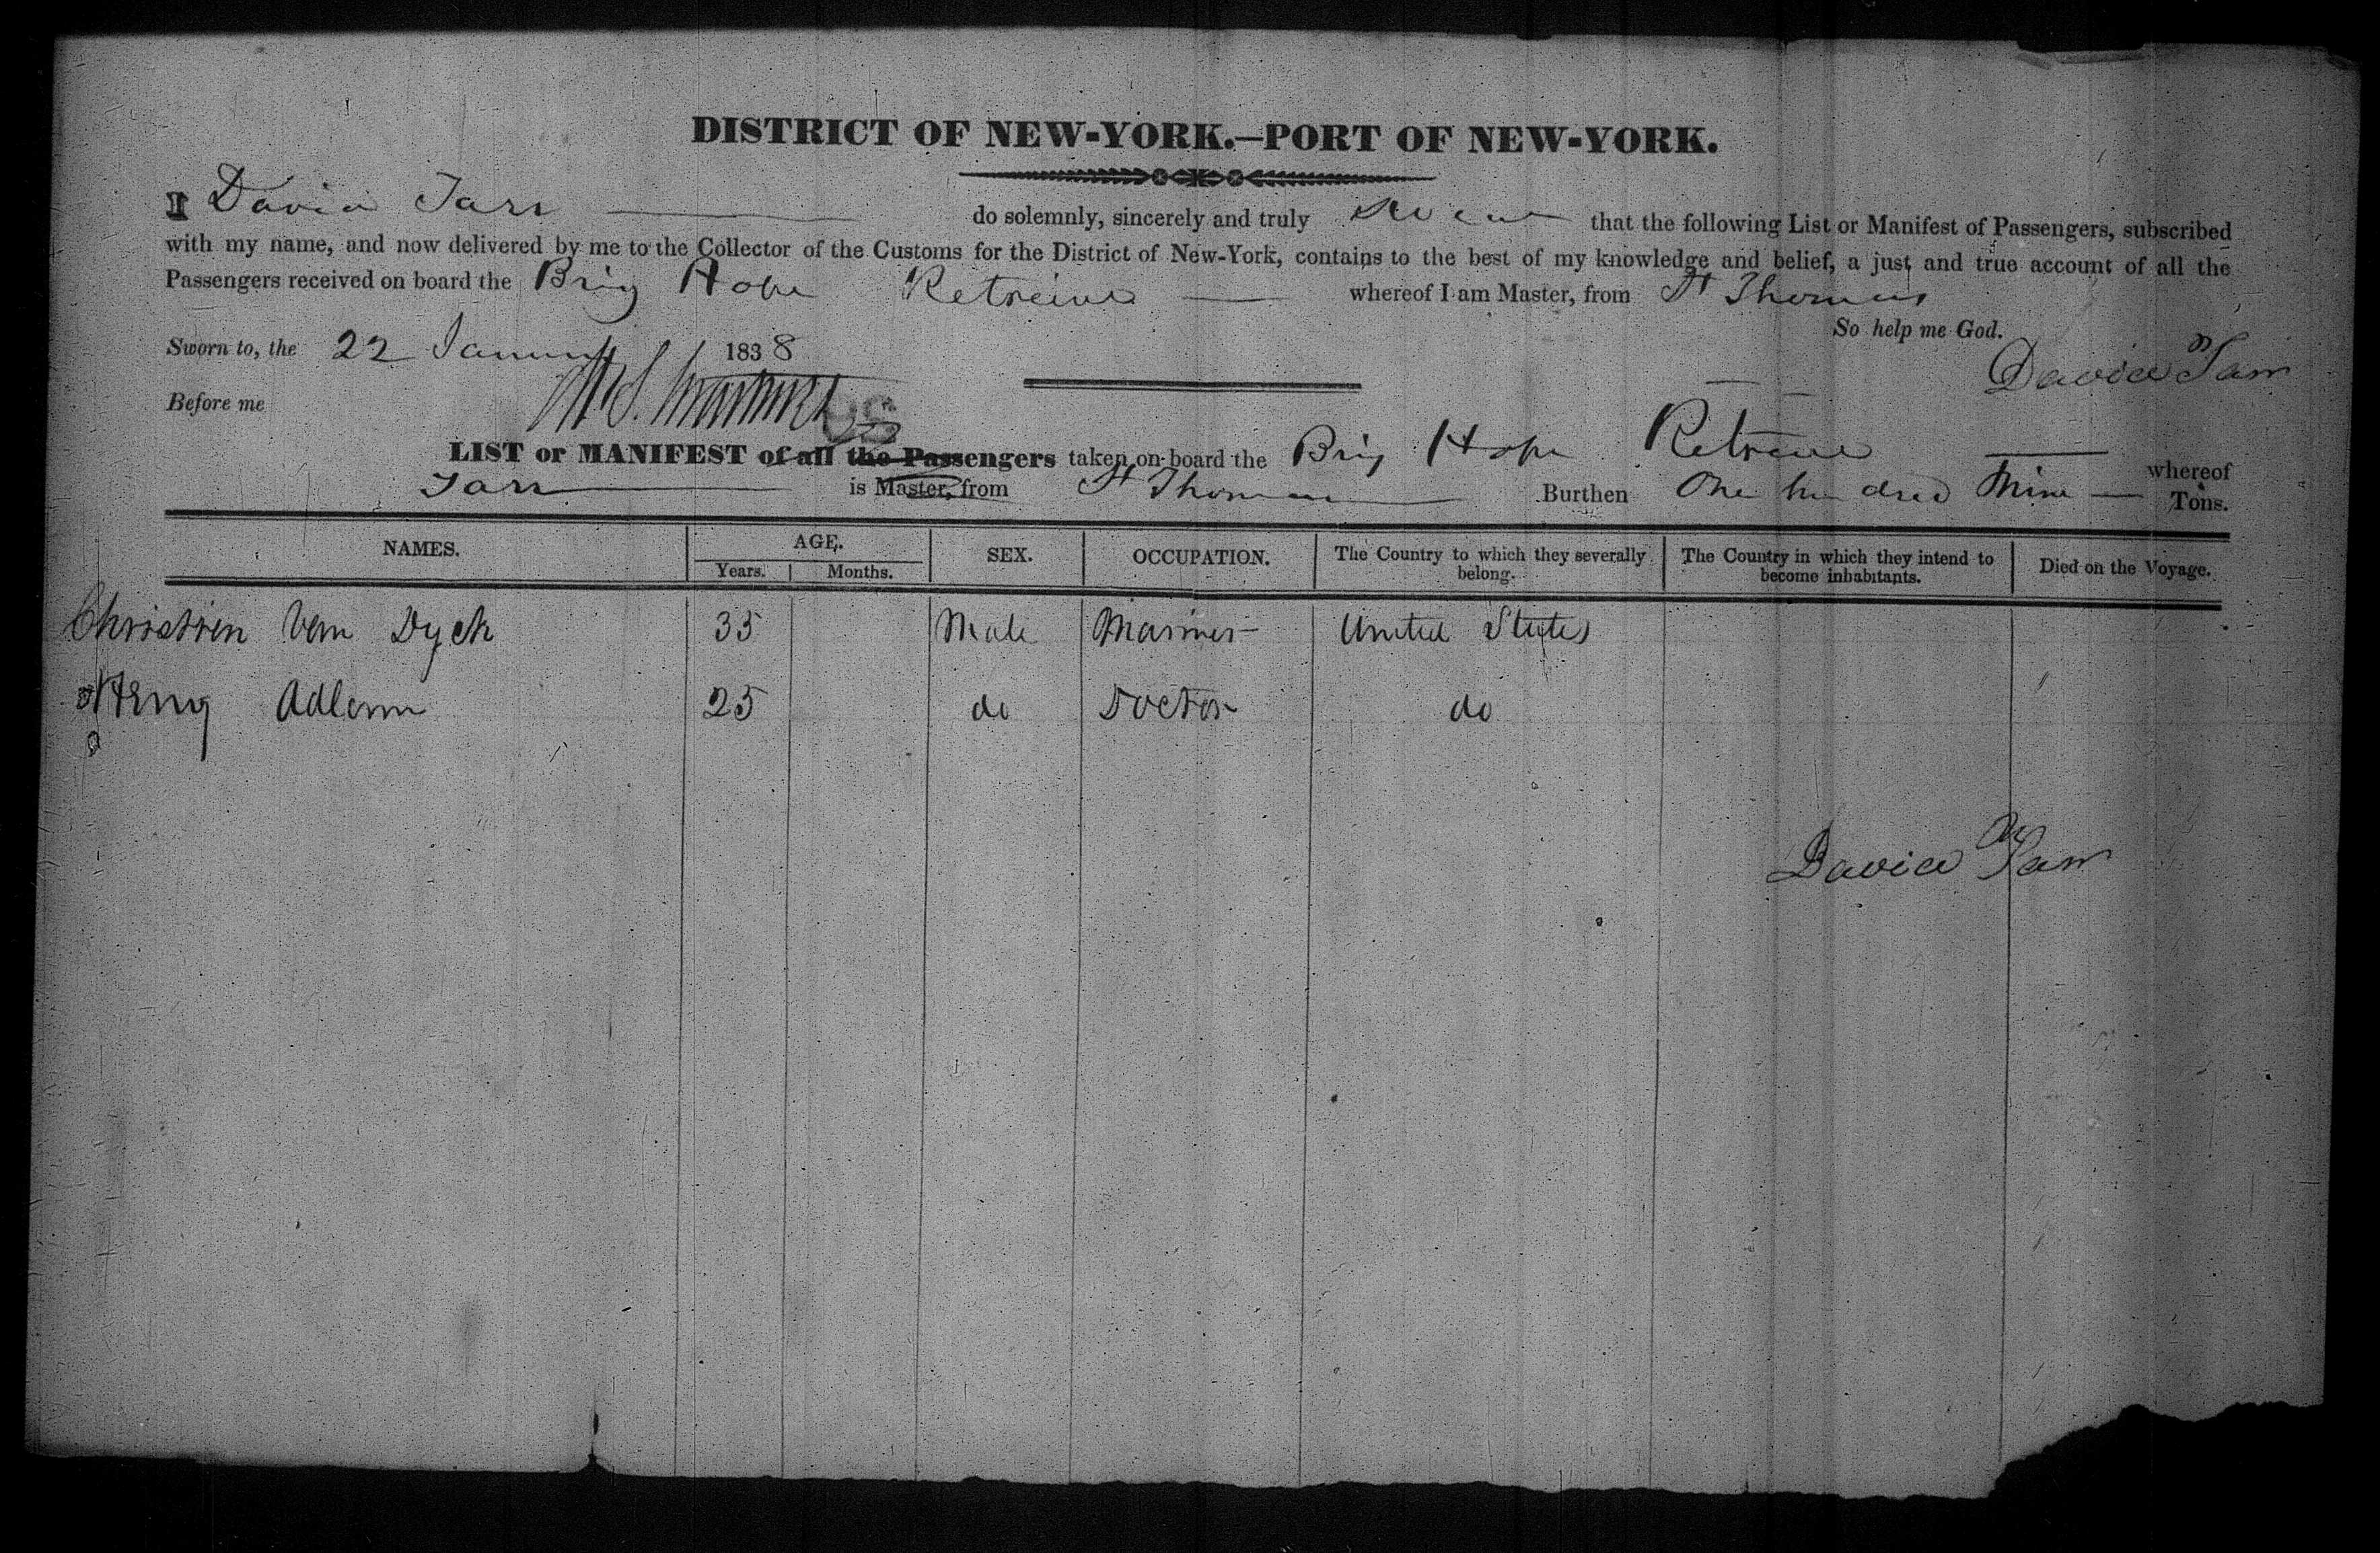 DISTRICT OF NEW-YORK.—PORT OF NEW-YORK.
I David Tarr do solemnly, sincerely and truly swear that the following List or Manifest of Passengers, subscribed
with my name, and now delivered by me to the Collector of the Customs for the District of New-York, contains to the best of my knowledge and belief, a just and true account of all the
Passengers received on board the Brig Hope Retreive whereof I am Master, from St Thomas
So help me God.
Sworn to, the 22 January 1838
David Tarr
Before me
LIST or MANIFEST of all the Passengers taken on board the Brig Hope Retreive whereof
Tarr is Master, from St Thomas Burthen One hundred Nine Tons.
NAMES. AGE. SEX. OCCUPATION. The Country to which they severally belong. The Country in which they intend to become inhabitants. Died on the Voyage.
Years. Months.
Christien Van Dyck 35 Male Mariner United States
Henry 25 do Doctor do
David Tarr